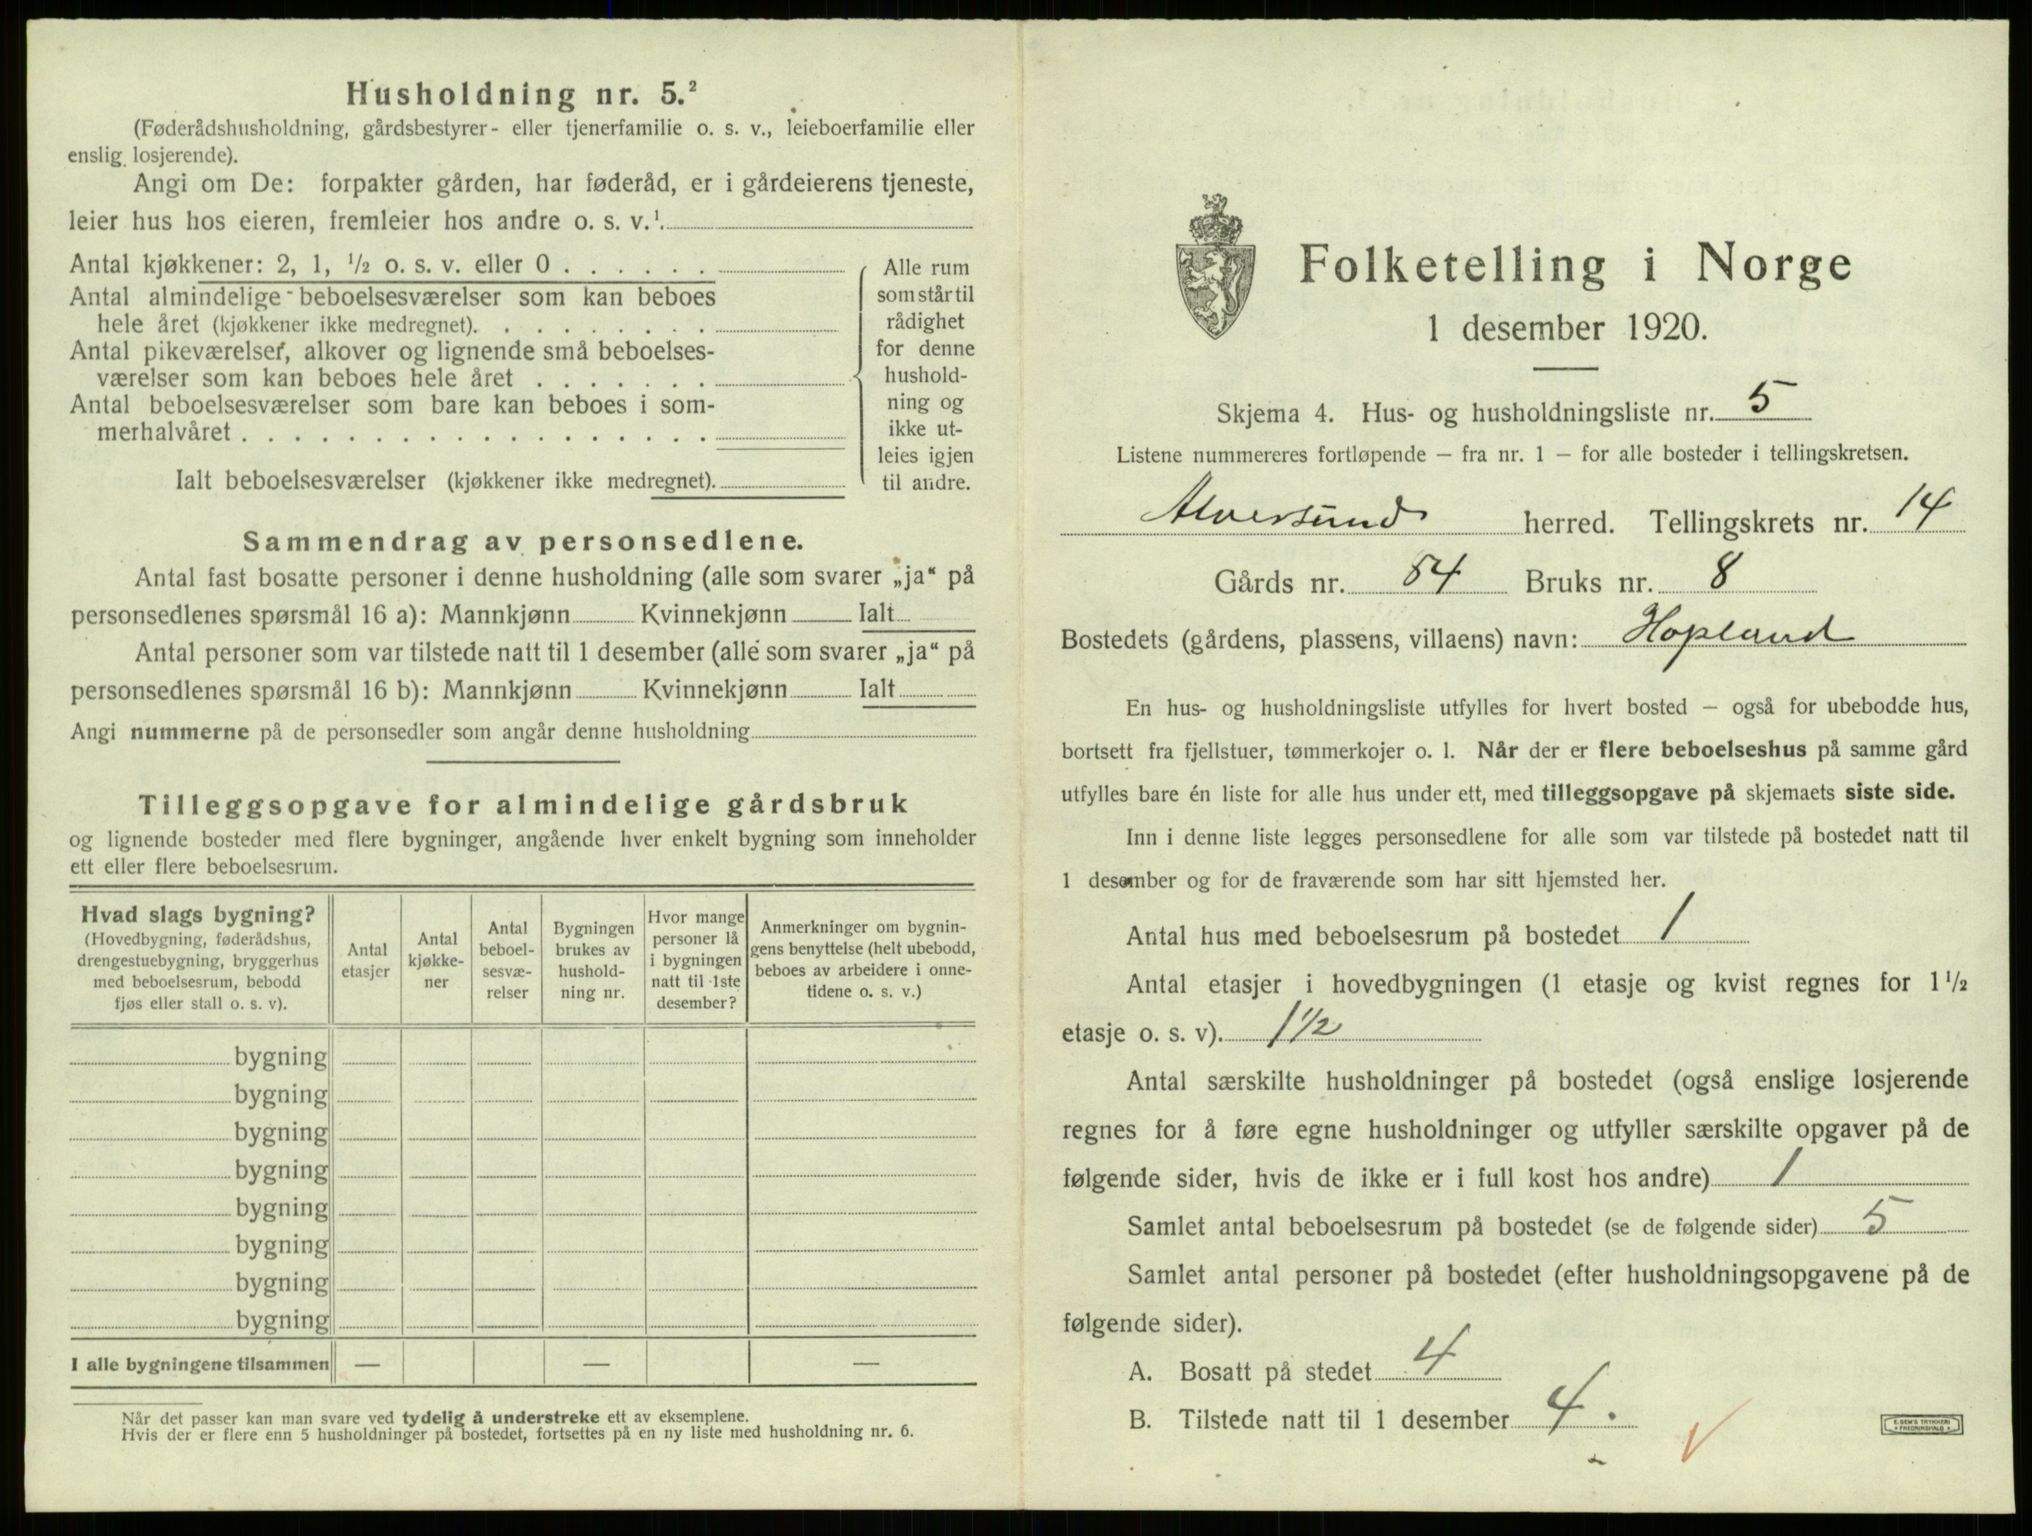 Husholdning nr. 5.²
(Føderådshusholdning, gårdsbestyrer- eller tjenerfamilie o. s. v., leieboerfamilie eller
enslig losjerende).
Angi om De: forpakter gården, har føderåd, er i gårdeierens tjeneste,
leier hus hos eieren, fremleier hos andre o. s. v.¹
Antal kjøkkener: 2, 1, ½ o. s. v. eller 0 . . . . . .
Antal almindelige beboelsesværelser som kan beboes
hele året (kjøkkener ikke medregnet). . . . . . . . .
Antal pikeværelser, alkover og lignende små beboelses-
værelser som kan beboes hele året . . . . . . .
Antal beboelsesværelser som bare kan beboes i som-
merhalvåret . . . . . . . . . . . . . . . . . .
Ialt beboelsesværelser (kjøkkener ikke medregnet).
Alle rum
som står til
rådighet
for denne
hushold-
ning og
ikke ut-
leies igjen
til andre.
Sammendrag av personsedlene.
Antal fast bosatte personer i denne husholdning (alle som svarer „ja“ på
personsedlenes spørsmål 16 a): Mannkjønn Kvinnekjønn Ialt
Antal personer som var tilstede natt til 1 desember (alle som svarer „ja“ på
personsedlenes spørsmål 16 b): Mannkjønn Kvinnekjønn Ialt
Angi nummerne på de personsedler som angår denne husholdning
Tilleggsopgave for almindelige gårdsbruk
og lignende bosteder med flere bygninger, angående hver enkelt bygning som inneholder
ett eller flere beboelsesrum.
Hvad slags bygning?
(Hovedbygning, føderådshus,
drengestuebygning, bryggerhus
med beboelsesrum, bebodd
fjøs eller stall o. s. v).
Antal
etasjer
Antal
kjøkke-
ner
Antal
beboel-
sesvæ-
relser
Bygningen
brukes av
hushold-
ning nr.
Hvor mange
personer lå
i bygningen
natt til 1ste
desember?
Anmerkninger om bygnin-
gens benyttelse (helt ubebodd,
beboes av arbeidere i onne-
tidene o. s. v.)
bygning
bygning
bygning
bygning
bygning
bygning
bygning
bygning
I alle bygningene tilsammen — — —
Når det passer kan man svare ved tydelig å understreke ett av eksemplene.
Hvis der er flere enn 5 husholdninger på bostedet, fortsettes på en ny liste med husholdning nr. 6.
Folketelling i Norge
1 desember 1920.
Skjema 4. Hus- og husholdningsliste nr. 5
Listene nummereres fortløpende — fra nr. 1 — for alle bosteder i tellingskretsen.
Alversund herred. Tellingskrets nr. 14
Gårds nr. 54 Bruks nr. 8
Bostedets (gårdens, plassens, villaens) navn: Hopland
En hus- og husholdningsliste utfylles for hvert bosted — også for ubebodde hus,
bortsett fra fjellstuer, tømmerkojer o. l. Når der er flere beboelseshus på samme gård
utfylles bare én liste for alle hus under ett, med tilleggsopgave på skjemaets siste side.
Inn i denne liste legges personsedlene for alle som var tilstede på bostedet natt til
1 desember og for de fraværende som har sitt hjemsted her.
Antal hus med beboelsesrum på bostedet 1
Antal etasjer i hovedbygningen (1 etasje og kvist regnes for 1½
etasje o. s. v). 1½
Antal særskilte husholdninger på bostedet (også enslige losjerende
regnes for å føre egne husholdninger og utfyller særskilte opgaver på de
følgende sider, hvis de ikke er i full kost hos andre) 1
Samlet antal beboelsesrum på bostedet (se de følgende sider) 5
Samlet antal personer på bostedet (efter husholdningsopgavene på de
følgende sider).
A. Bosatt på stedet 4
B. Tilstede natt til 1 desember 4.
E. SEM'S TRYKKERI
FREDRIKSHALD